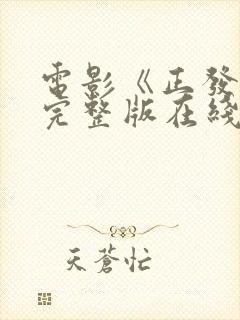 電影《正發
完整版在綫
天蒼忙